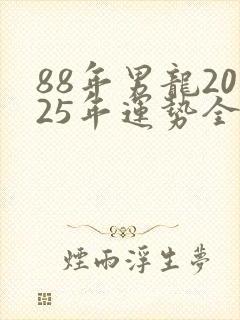 88年男龍20
25年運勢全
煙雨浮生夢